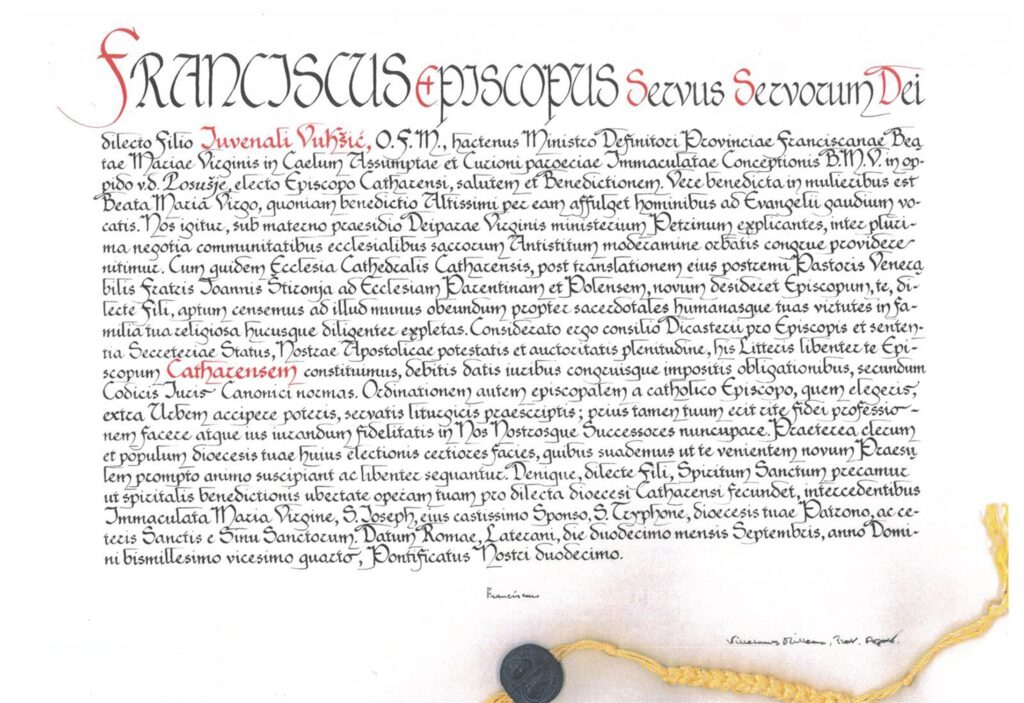 FRANCISCUS EPISCOPUS Servus Servorum Dei
dilecto Filio Iuvenali Vukšić, O.F.M., hactenus Ministro Definitori Provinciae Franciscanae Bea
tae Mariae Virginis in Caelum Assumptae et Curioni paroeciae Immaculatae Conceptionis B.M.V. in op-
pido v.d. Posušje, electo Episcopo Catharensi, salutem et Benedictionem. Vere benedicta in mulieribus est
Beata Maria Virgo, quoniam benedictio Altissimi per eam affulget hominibus ad Evangelii gaudium vo-
catis. Nos igitur, sub materno praesidio Deiparae Virginis ministerium Petrinum explicantes, inter pluri-
ma negotia communitatibus ecclesialibus sacrorum Antistitum moderamine orbatis congrue providere
nitimur. Cum quidem Ecclesia Cathedralis Catharensis, post translationem eius postremi Pastoris Venera
bilis Fratris Ioannis Štironja ad Ecclesiam Parentinam et Polensem, novum desideret Episcopum, te, di-
lecte Fili, aptum censemus ad illud munus obeundum propter sacerdotales humanasque tuas virtutes in fa-
milia tua religiosa hucusque diligenter expletas. Considerato ergo consilio Dicasterii pro Episcopis et senten-
tia Secreteriae Status, Nostrae Apostolicae potestatis et auctoritatis plenitudine, his Litteris libenter te Epi-
scopum Catharensem constituimus, debitis datis iuribus congruisque impositis obligationibus, secundum
Codicis Iuris Canonici normas. Ordinationem autem episcopalem a catholico Episcopo, quem elegeris,
extra Urbem accipere poteris, servatis liturgicis praescriptis; prius tamen tuum erit rite fidei professio-
nem facere atque ius iurandum fidelitatis in Nos Nostrosque Successores nuncupare. Praeterea clerum
et populum dioecesis tuae huius electionis certiores facies, quibus suademus ut te venientem novum Praesu
lem prompto animo suscipiant ac libenter sequantur. Denique, dilecte Fili, Spiritum Sanctum precamur
ut spiritalis benedictionis ubertate operam tuam pro dilecta dioecesi Catharensi fecundet, intercedentibus
Immaculata Maria Virgine, S. Ioseph, eius castissimo Sponso, S. Tryphone, dioecesis tuae Patrono, ac ce-
teris Sanctis e Sinu Sanctorum. Datum Romae, Laterani, die duodecimo mensis Septembris, anno Domi-
ni bismillesimo vicesimo quarto, Pontificatus Nostri duodecimo.
Franciscus